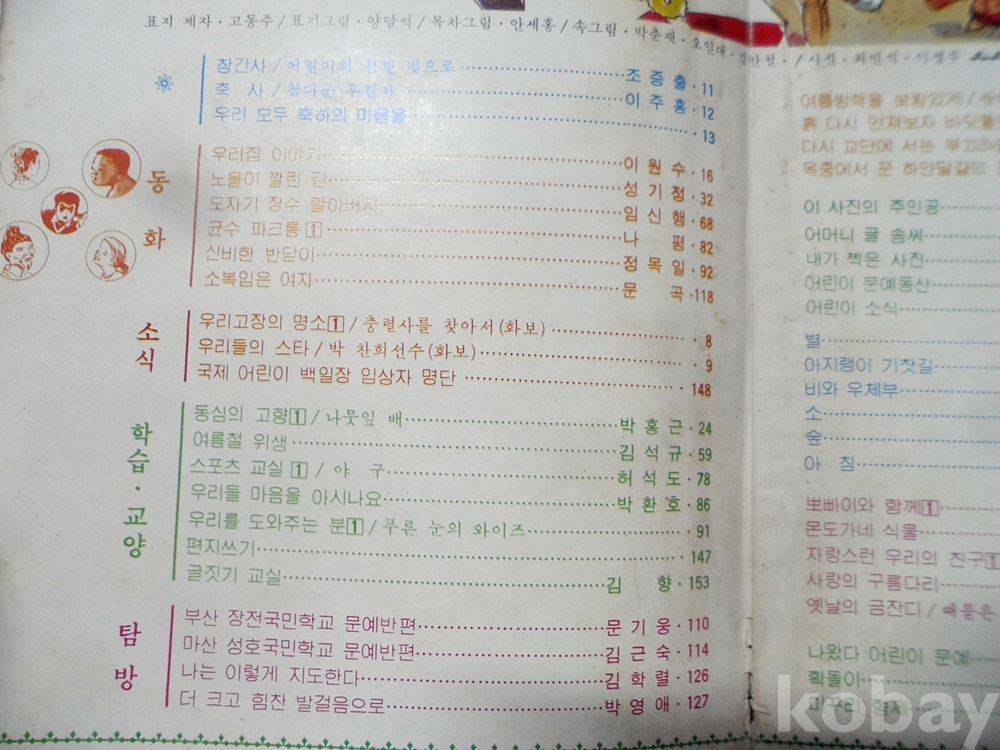 표지 제자·고동주/표기그림·양달석/목차그림·안세홍/속그림·박춘재·오인대·길만천·/사진·최민석·
창간사/어린이의 참벗으로 조증출·11
축 사/참다운 후원자 이주홍·12
우리 모두 축하의 마음을 13
동화
우리집 이야기 이원수·16
노을이 깔린 길 성기정·32
도자기 장수 할아버지 임신행·68
균수 파크통 1 나 평·82
신비한 반닫이 정목일·92
소복입은 여자 문 곡·118
소식
우리고장의 명소1/충렬사를 찾아서(화보) ·8
우리들의 스타/박 찬희선수(화보) ·9
국제 어린이 백일장 입상자 명단 ·148
학습·교양
동심의 고향1/나뭇잎 배 박홍근·24
여름철 위생 김석규·59
스포츠 교실1/야 구 허석도·78
우리들 마음을 아시나요 박환호·86
우리를 도와주는 분1/푸른 눈의 와이즈 ·91
편지쓰기 ·147
글짓기 교실 김 향·153
탐방
부산 장전국민학교 문예반편 문기웅·110
마산 성호국민학교 문예반편 김근숙·114
나는 이렇게 지도한다 김학렬·126
더 크고 힘찬 발걸음으로 박영애·127
여름방학을 보람있게/
흙 다시 만져보자 바닷물
다시 교단에 서는 부끄러
옥중에서 꾼 하얀달걀의
이 사진의 주인공
어머니 글 솜씨
내가 찍은 사진
어린이 문예동산
어린이 소식
별
아지랭이 기찻길
비와 우체부
소
숲
아 침
뽀빠이와 함께1
몬도가네 식물
자랑스런 우리의 친구1
사랑의 구름다리
옛날의 금잔디/
나왔다 어린이 문예
확돌이
미꾸리 형제
kobay